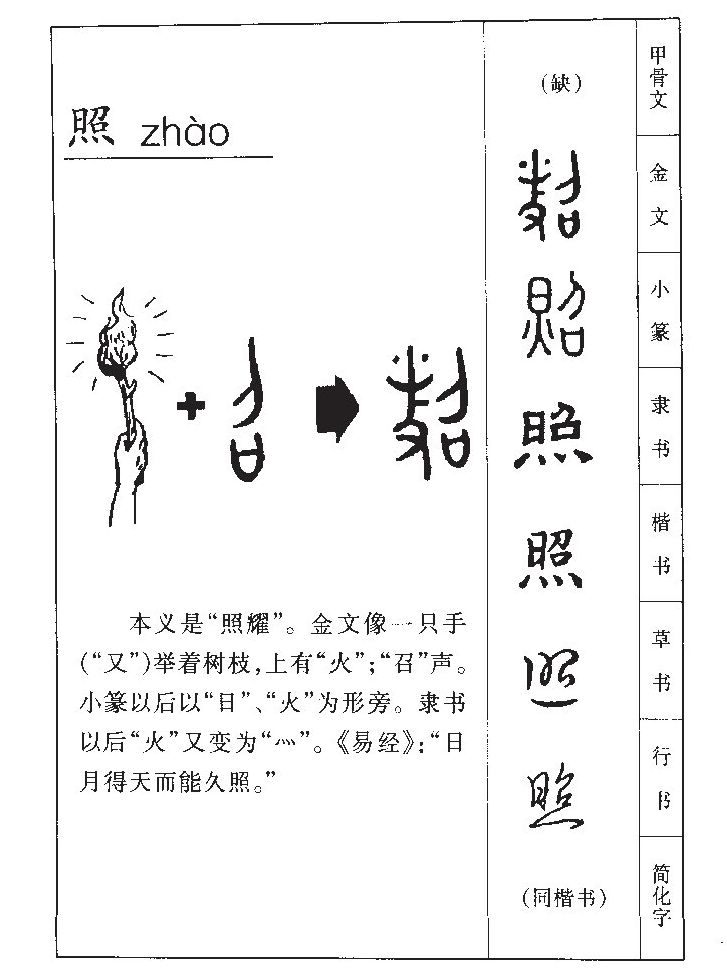 照 zhào
本义是“照耀”。金文像一只手
(“又”)举着树枝,上有“火”;“召”声。
小篆以后以“日”、“火”为形旁。隶书
以后“火”又变为“灬”。《易经》:“日
月得天而能久照。”
(缺)
甲骨文
金文
小篆
照
隶书
照
楷书
照
草书
照
行书
照
(同楷书)
简化字